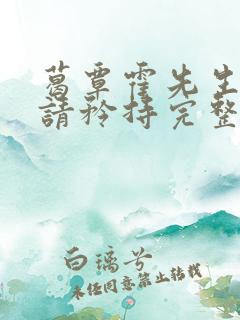 葛覃霍先生
請矜持完整
白璃兮
未经同意禁止转载